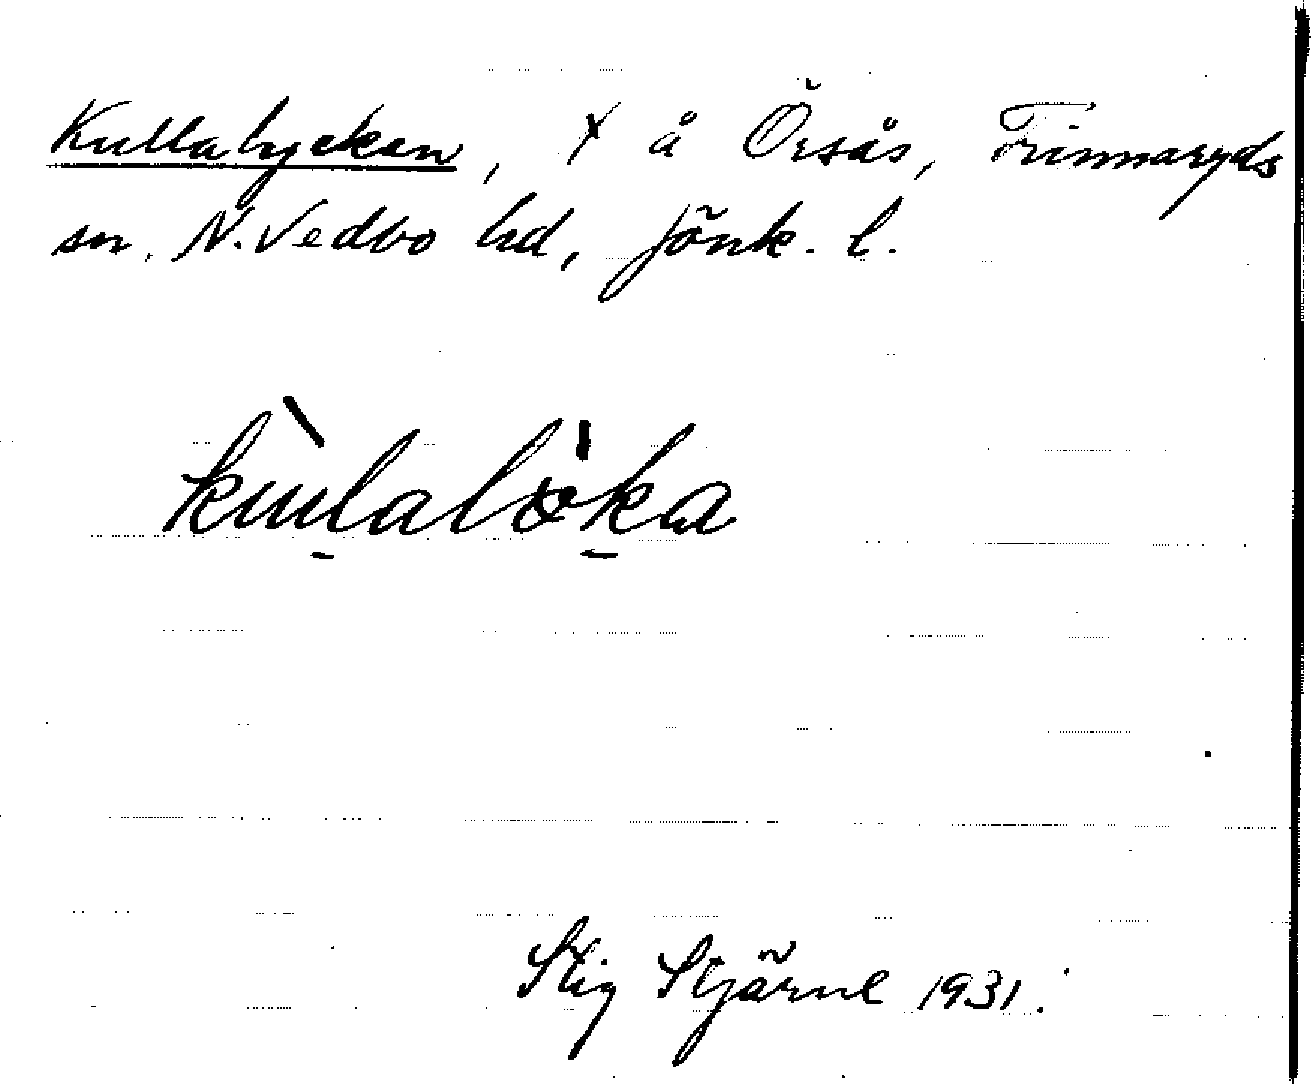 Kullalyckan, x å Örsås, Frinnaryds
sn. N. Vedbo hd, Jönk. l.
kùlalö̍ka
Stig Stjärne 1931.